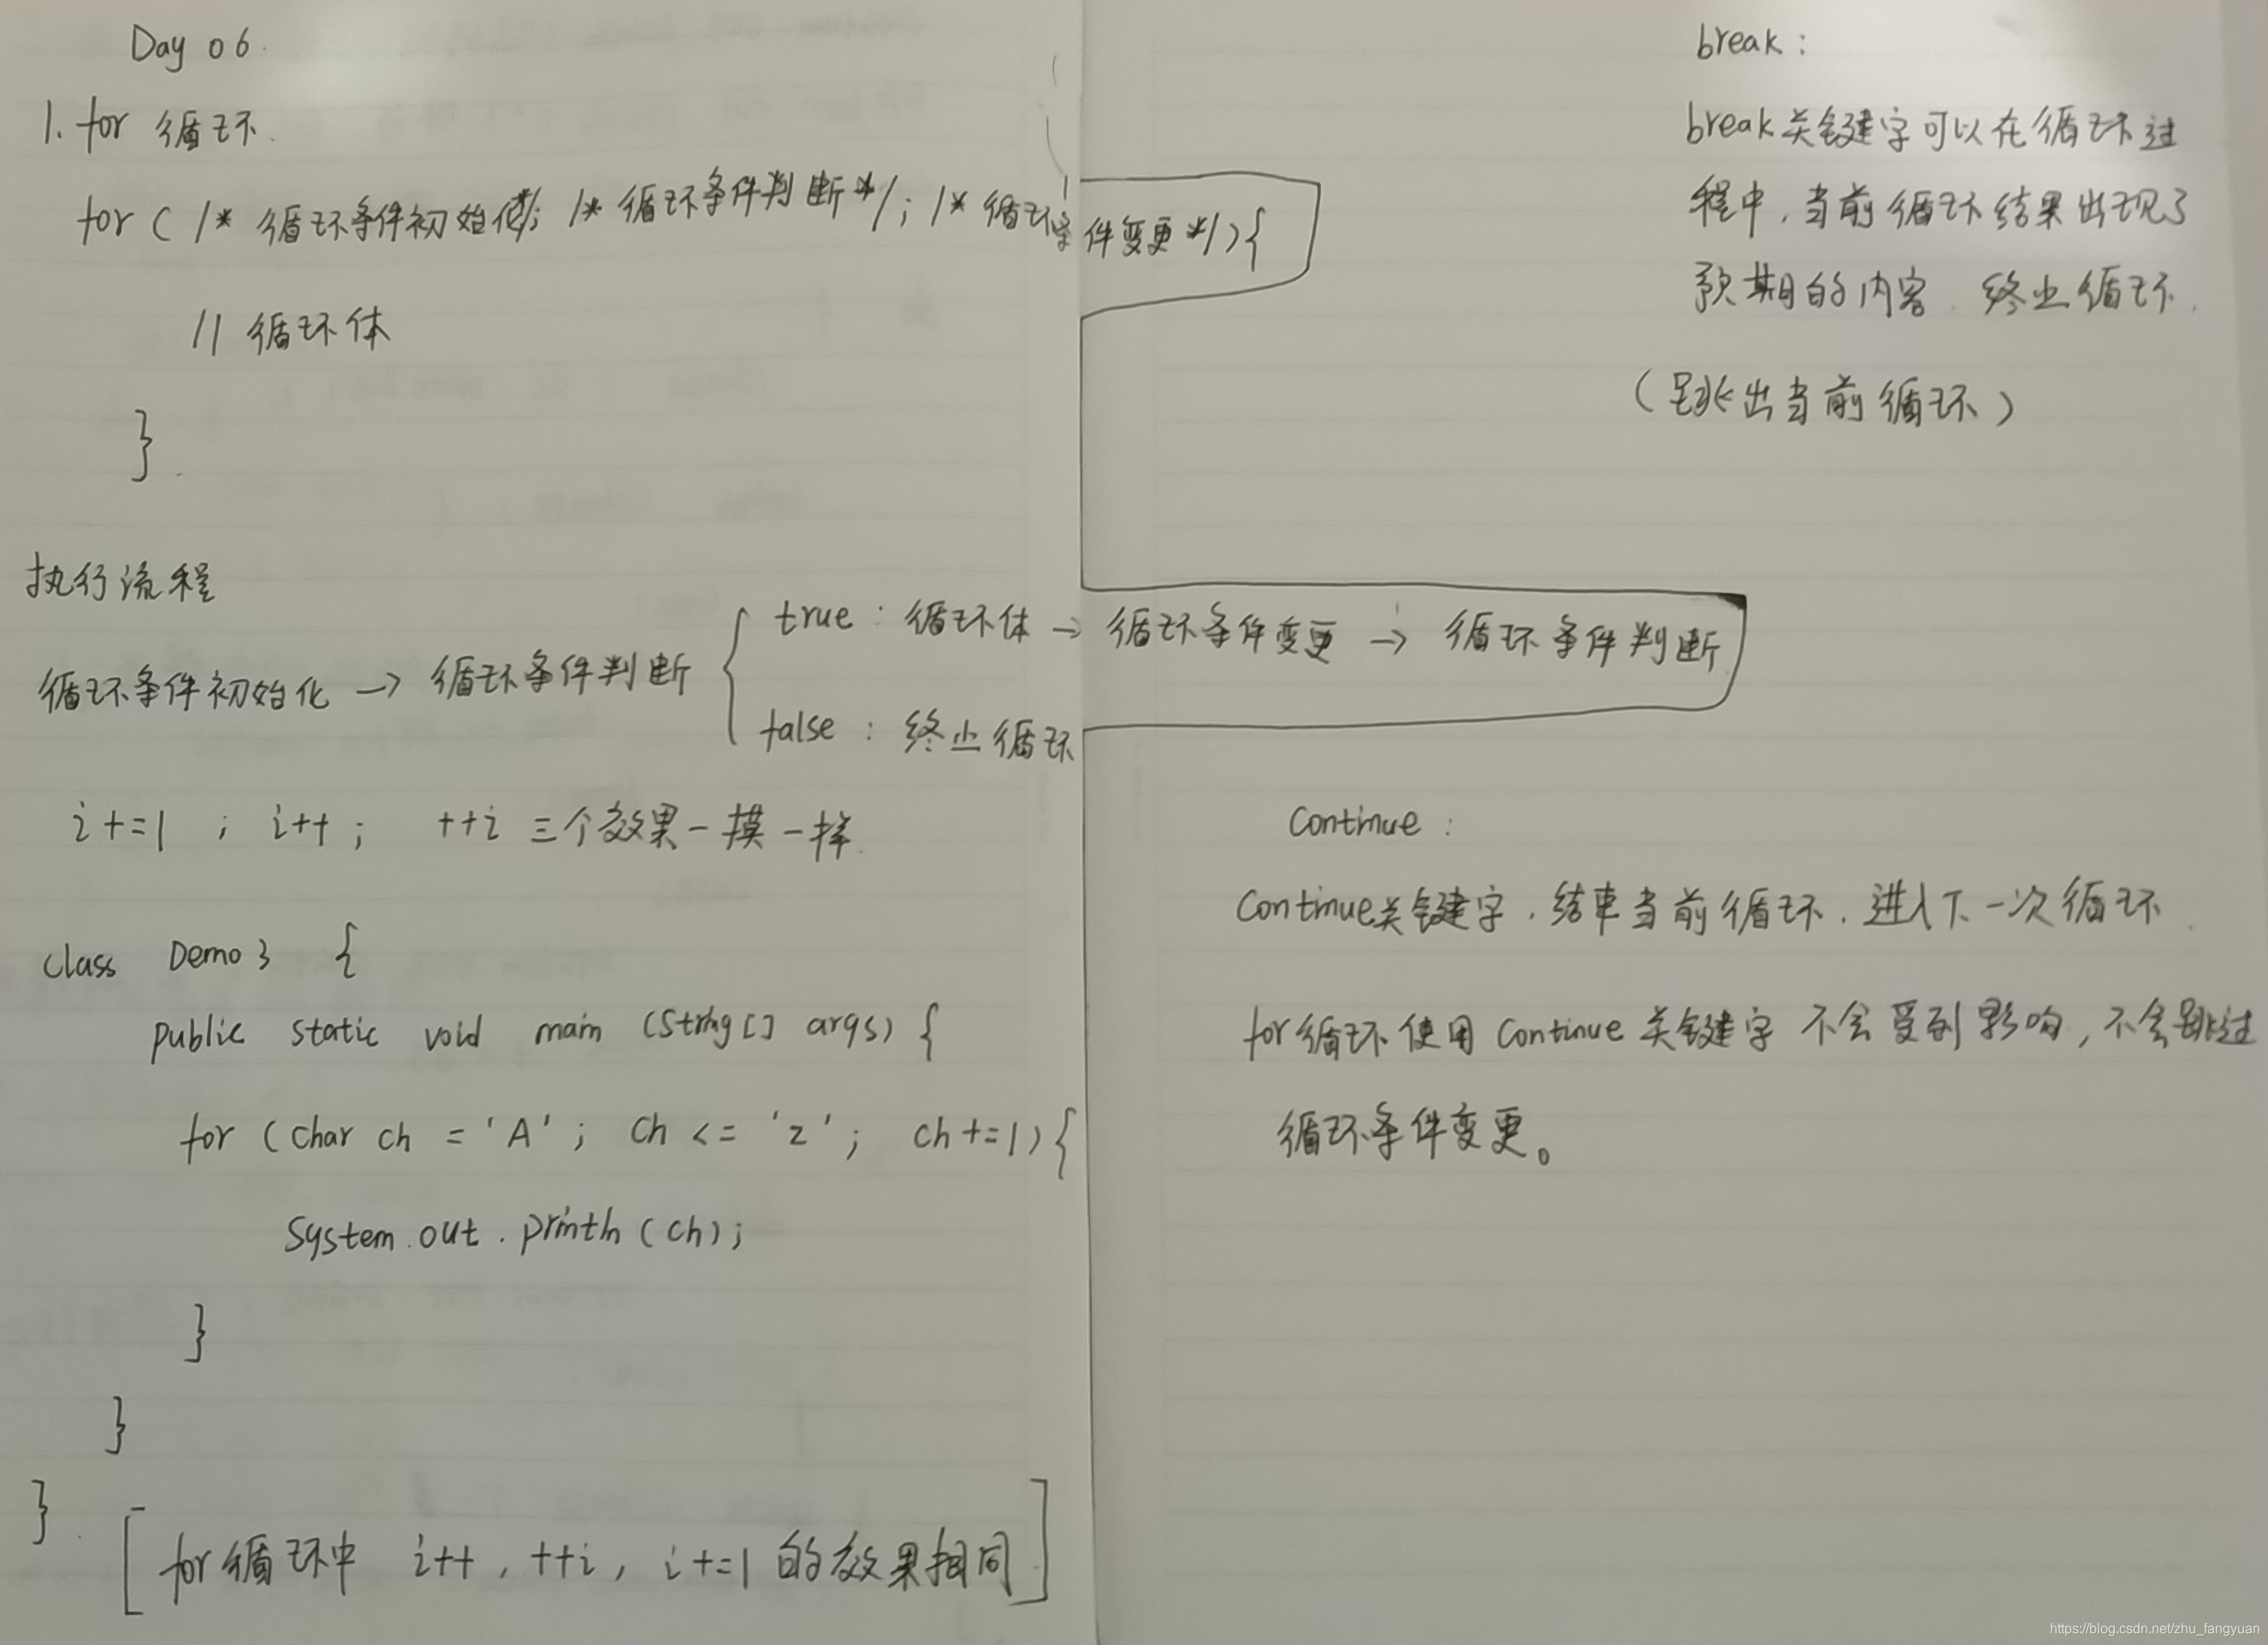 Day 06.
1. for 循环.
for ( /* 循环条件初始化*/; /* 循环条件判断*/; /* 循环条件变更*/){
// 循环体
}.
执行流程
循环条件初始化 → 循环条件判断 {
true : 循环体 → 循环条件变更 → 循环条件判断
false : 终止循环
i+=1 ; i++ ; ++i 三个效果一摸一样.
class Demo3 {
public static void main (String[] args) {
for (char ch = 'A' ; ch <= 'z' ; ch +=1){
System.out.println (ch);
}
}
}.
[ for循环中 i++ , ++i , i+=1 的效果相同 ]
break :
break关键字可以在循环过
程中,当前循环结果出现了
预期的内容. 终止循环.
(跳出当前循环)
continue :
continue关键字,结束当前循环,进入下一次循环.
for循环使用 continue 关键字 不会受到影响,不会跳过
循环条件变更。
https://blog.csdn.net/zhu_fangyuan